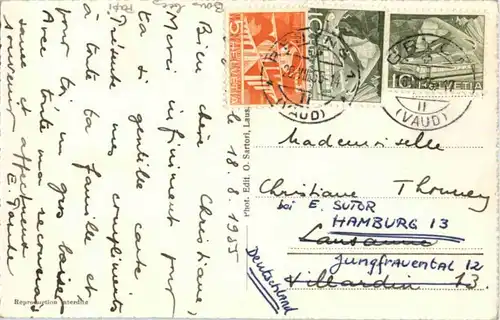 le 18.8.1955
Bien chère Christiane,
Merci infiniment pour
ta si gentille carte
Présente mes compliments
à toute ta famille et
pour toi, un gros baiser
Avec toute ma reconnais
sance et affectueux
souvenir
Reproduction interdite
Phot. Edit. O. Sartori, Laus.
5
5
10
HELVETIA
(VAUD)
(VAUD)
Mademoiselle
Christiane
bei E. SUTOR
HAMBURG 13
Lausanne
Jungfrauental 12
Villardin 13.
Deutschland